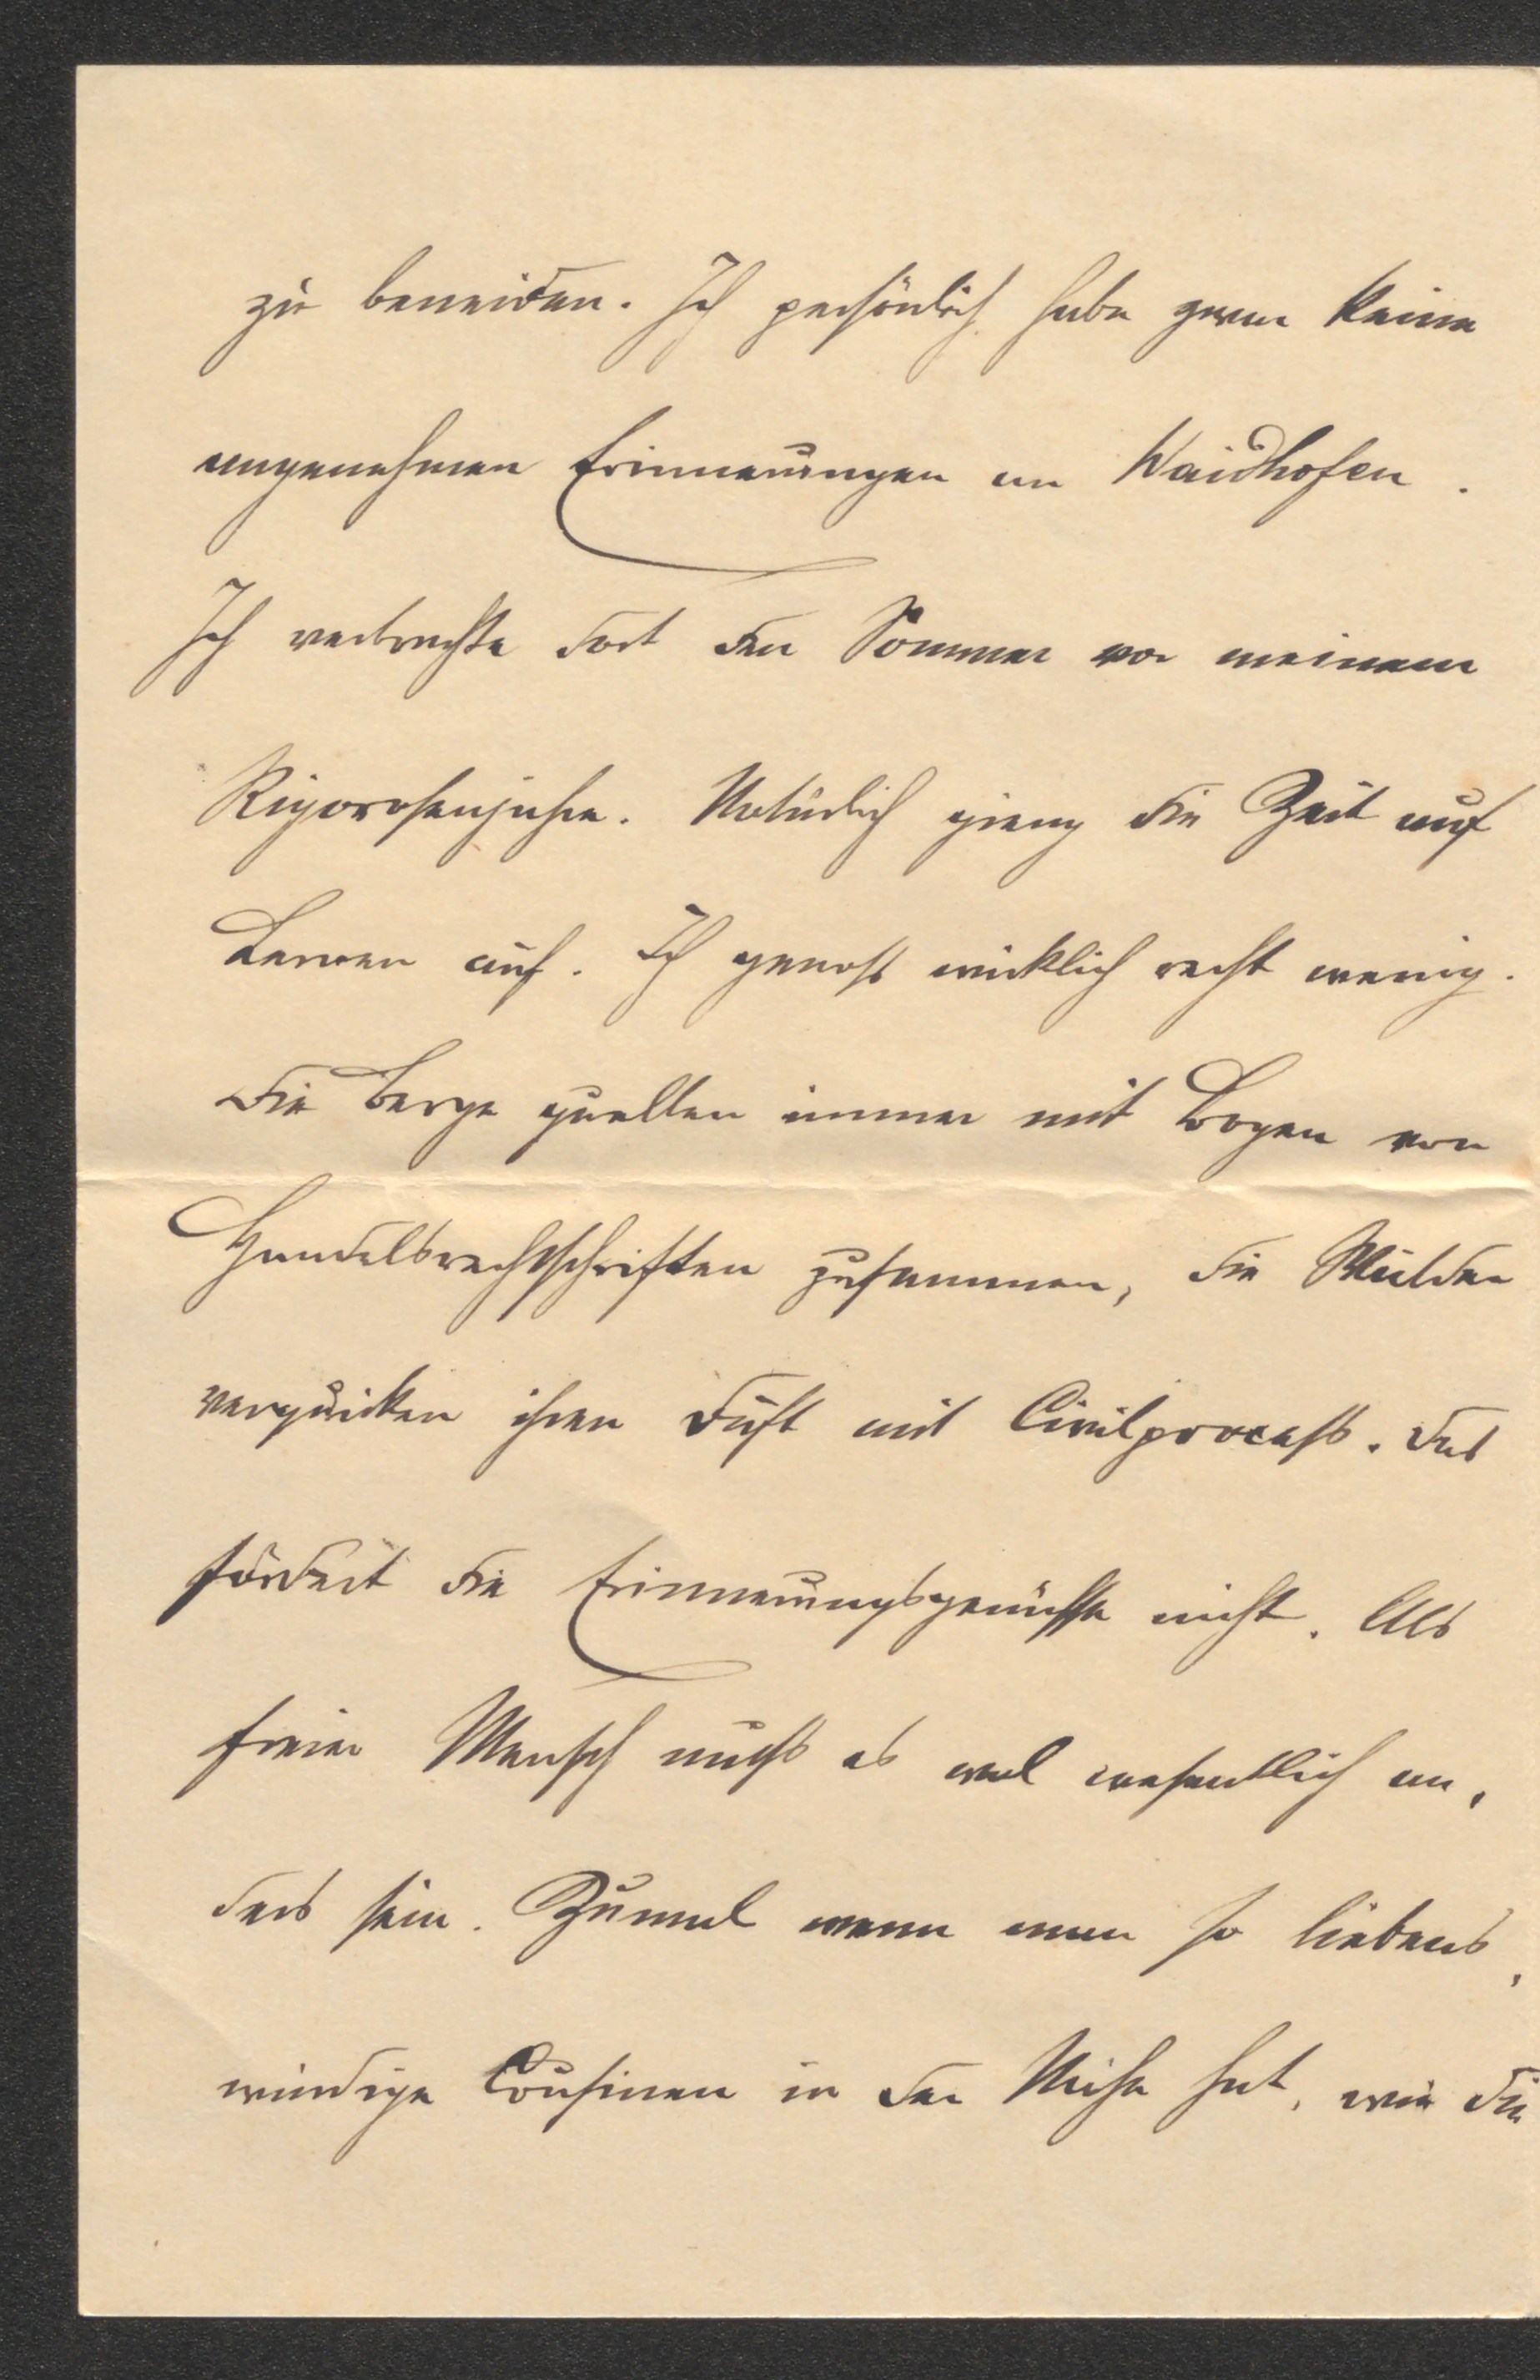 zu beneiden. Ich persönlich habe zwar keine
angenehmen Erinnerungen an Waidhofen.
Ich verbrachte dort den Sommer vor meinem
Rigorosenjahre. Natürlich gieng die Zeit auf
Lernen auf. Ich genoss wirklich recht wenig.
Die Berge quellen immer mit Bogen von
Handelsrechtschriften zusammen, die Wälder
verquicken ihren Duft mit Civilprocess. Das
fördert die Erinnerungsgenüsse nicht. Als
freier Mensch muss es wol wesentlich an,
ders sein. Zumal wenn man so liebens,
würdige Cousinen in der Nähe hat, wie Du